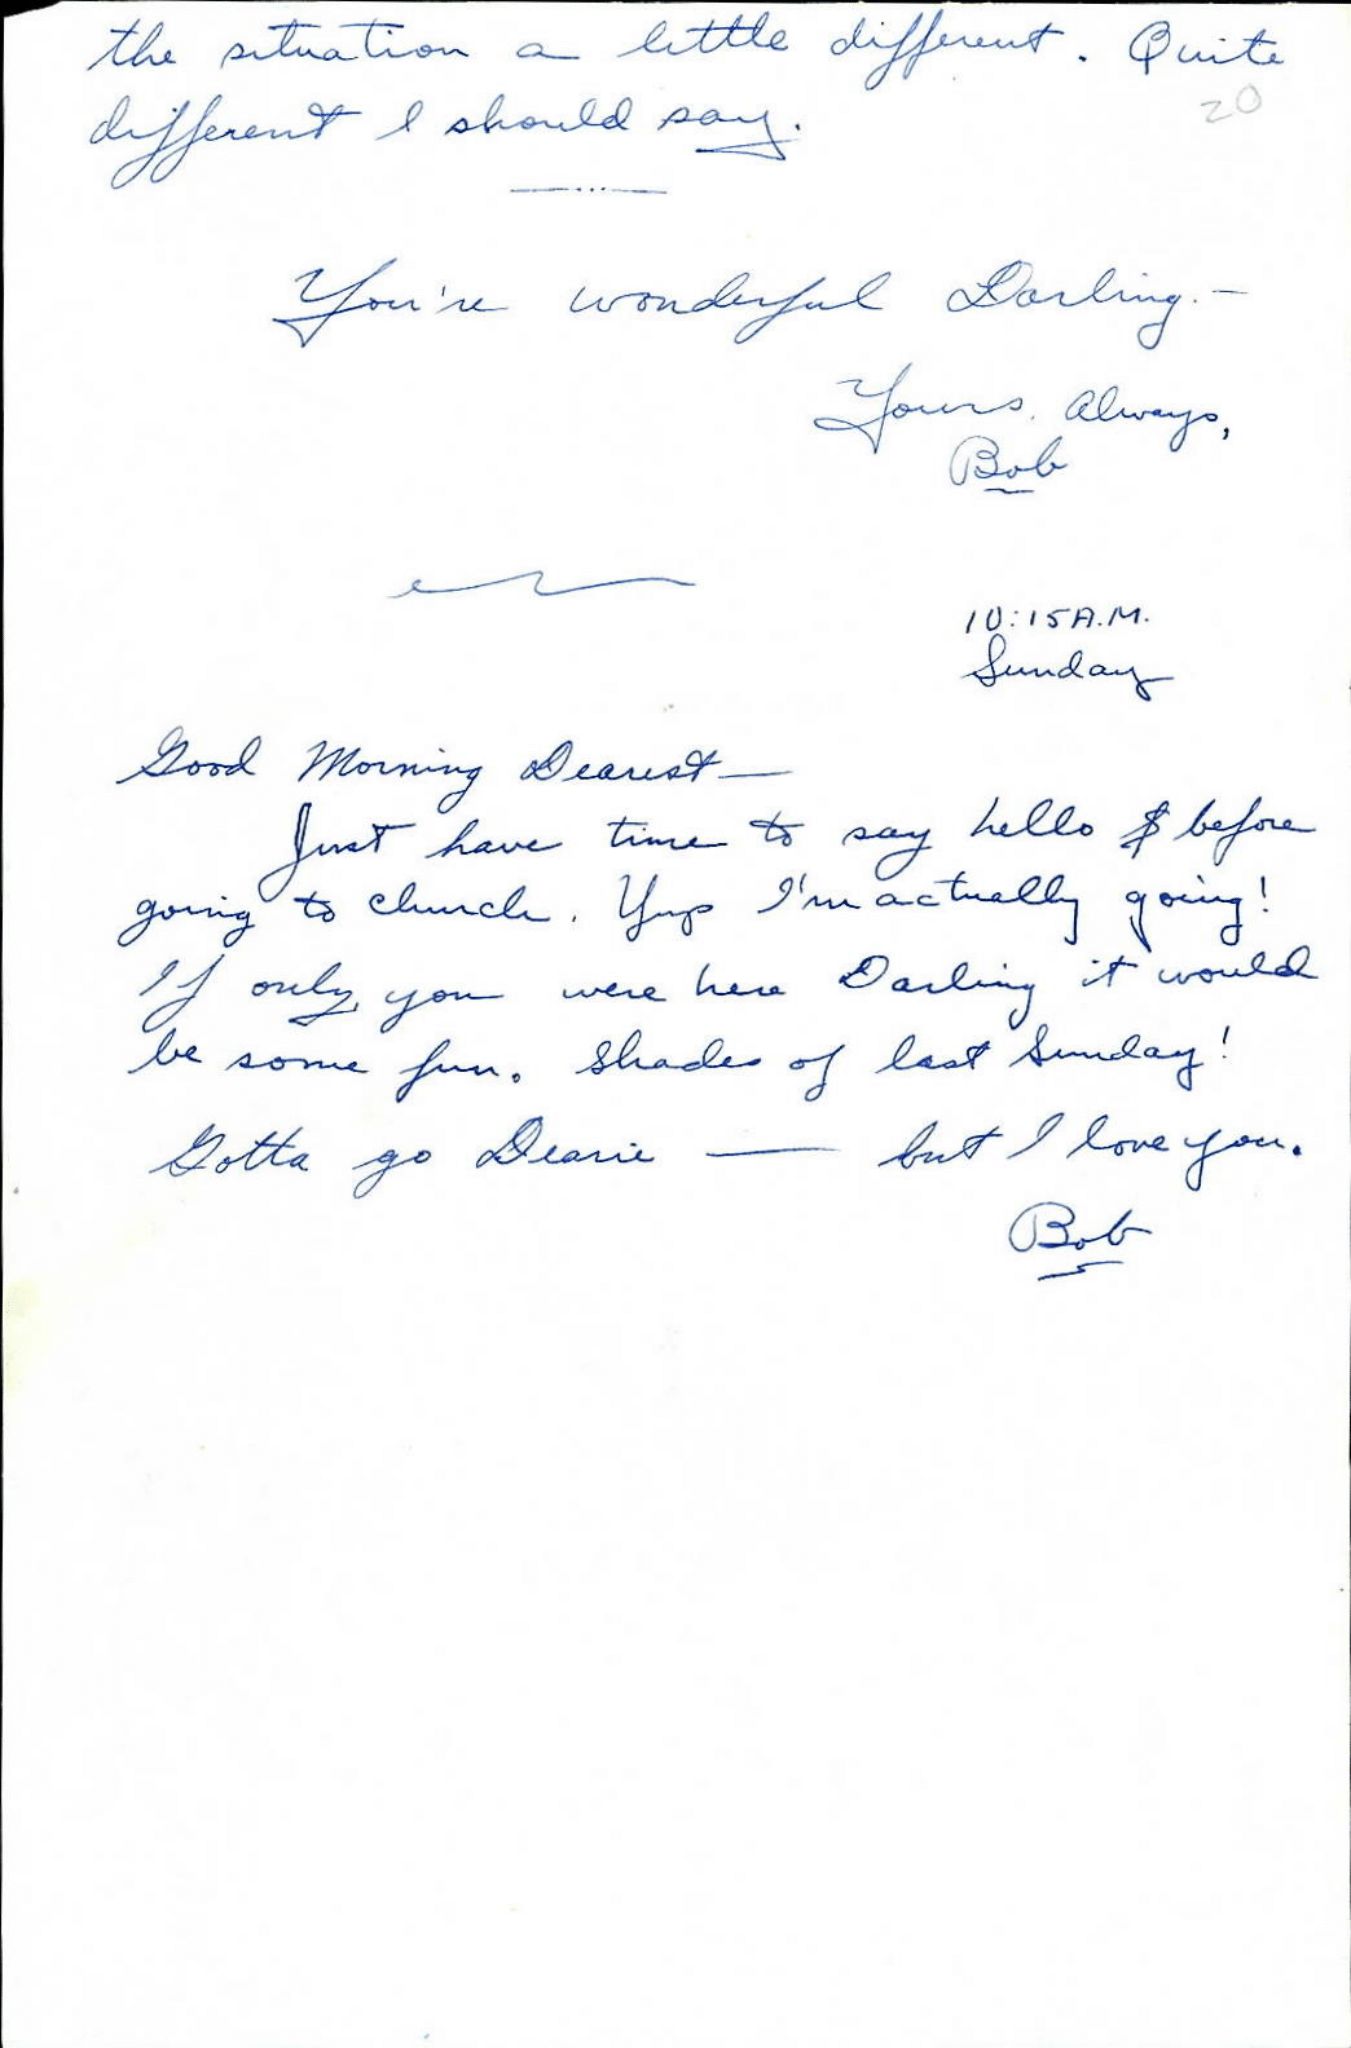 the situation a little different. Quite
20
different I should say.
You're wonderful Darling. —
Yours Always,
Bob
10:15 A.M.
Sunday
Good Morning Dearest —
Just have time to say hello before
going to church. Yup I'm actually going!
If only you were here Darling it would
be some fun. Shades of last Sunday!
Gotta go Dearie — but I love you.
Bob